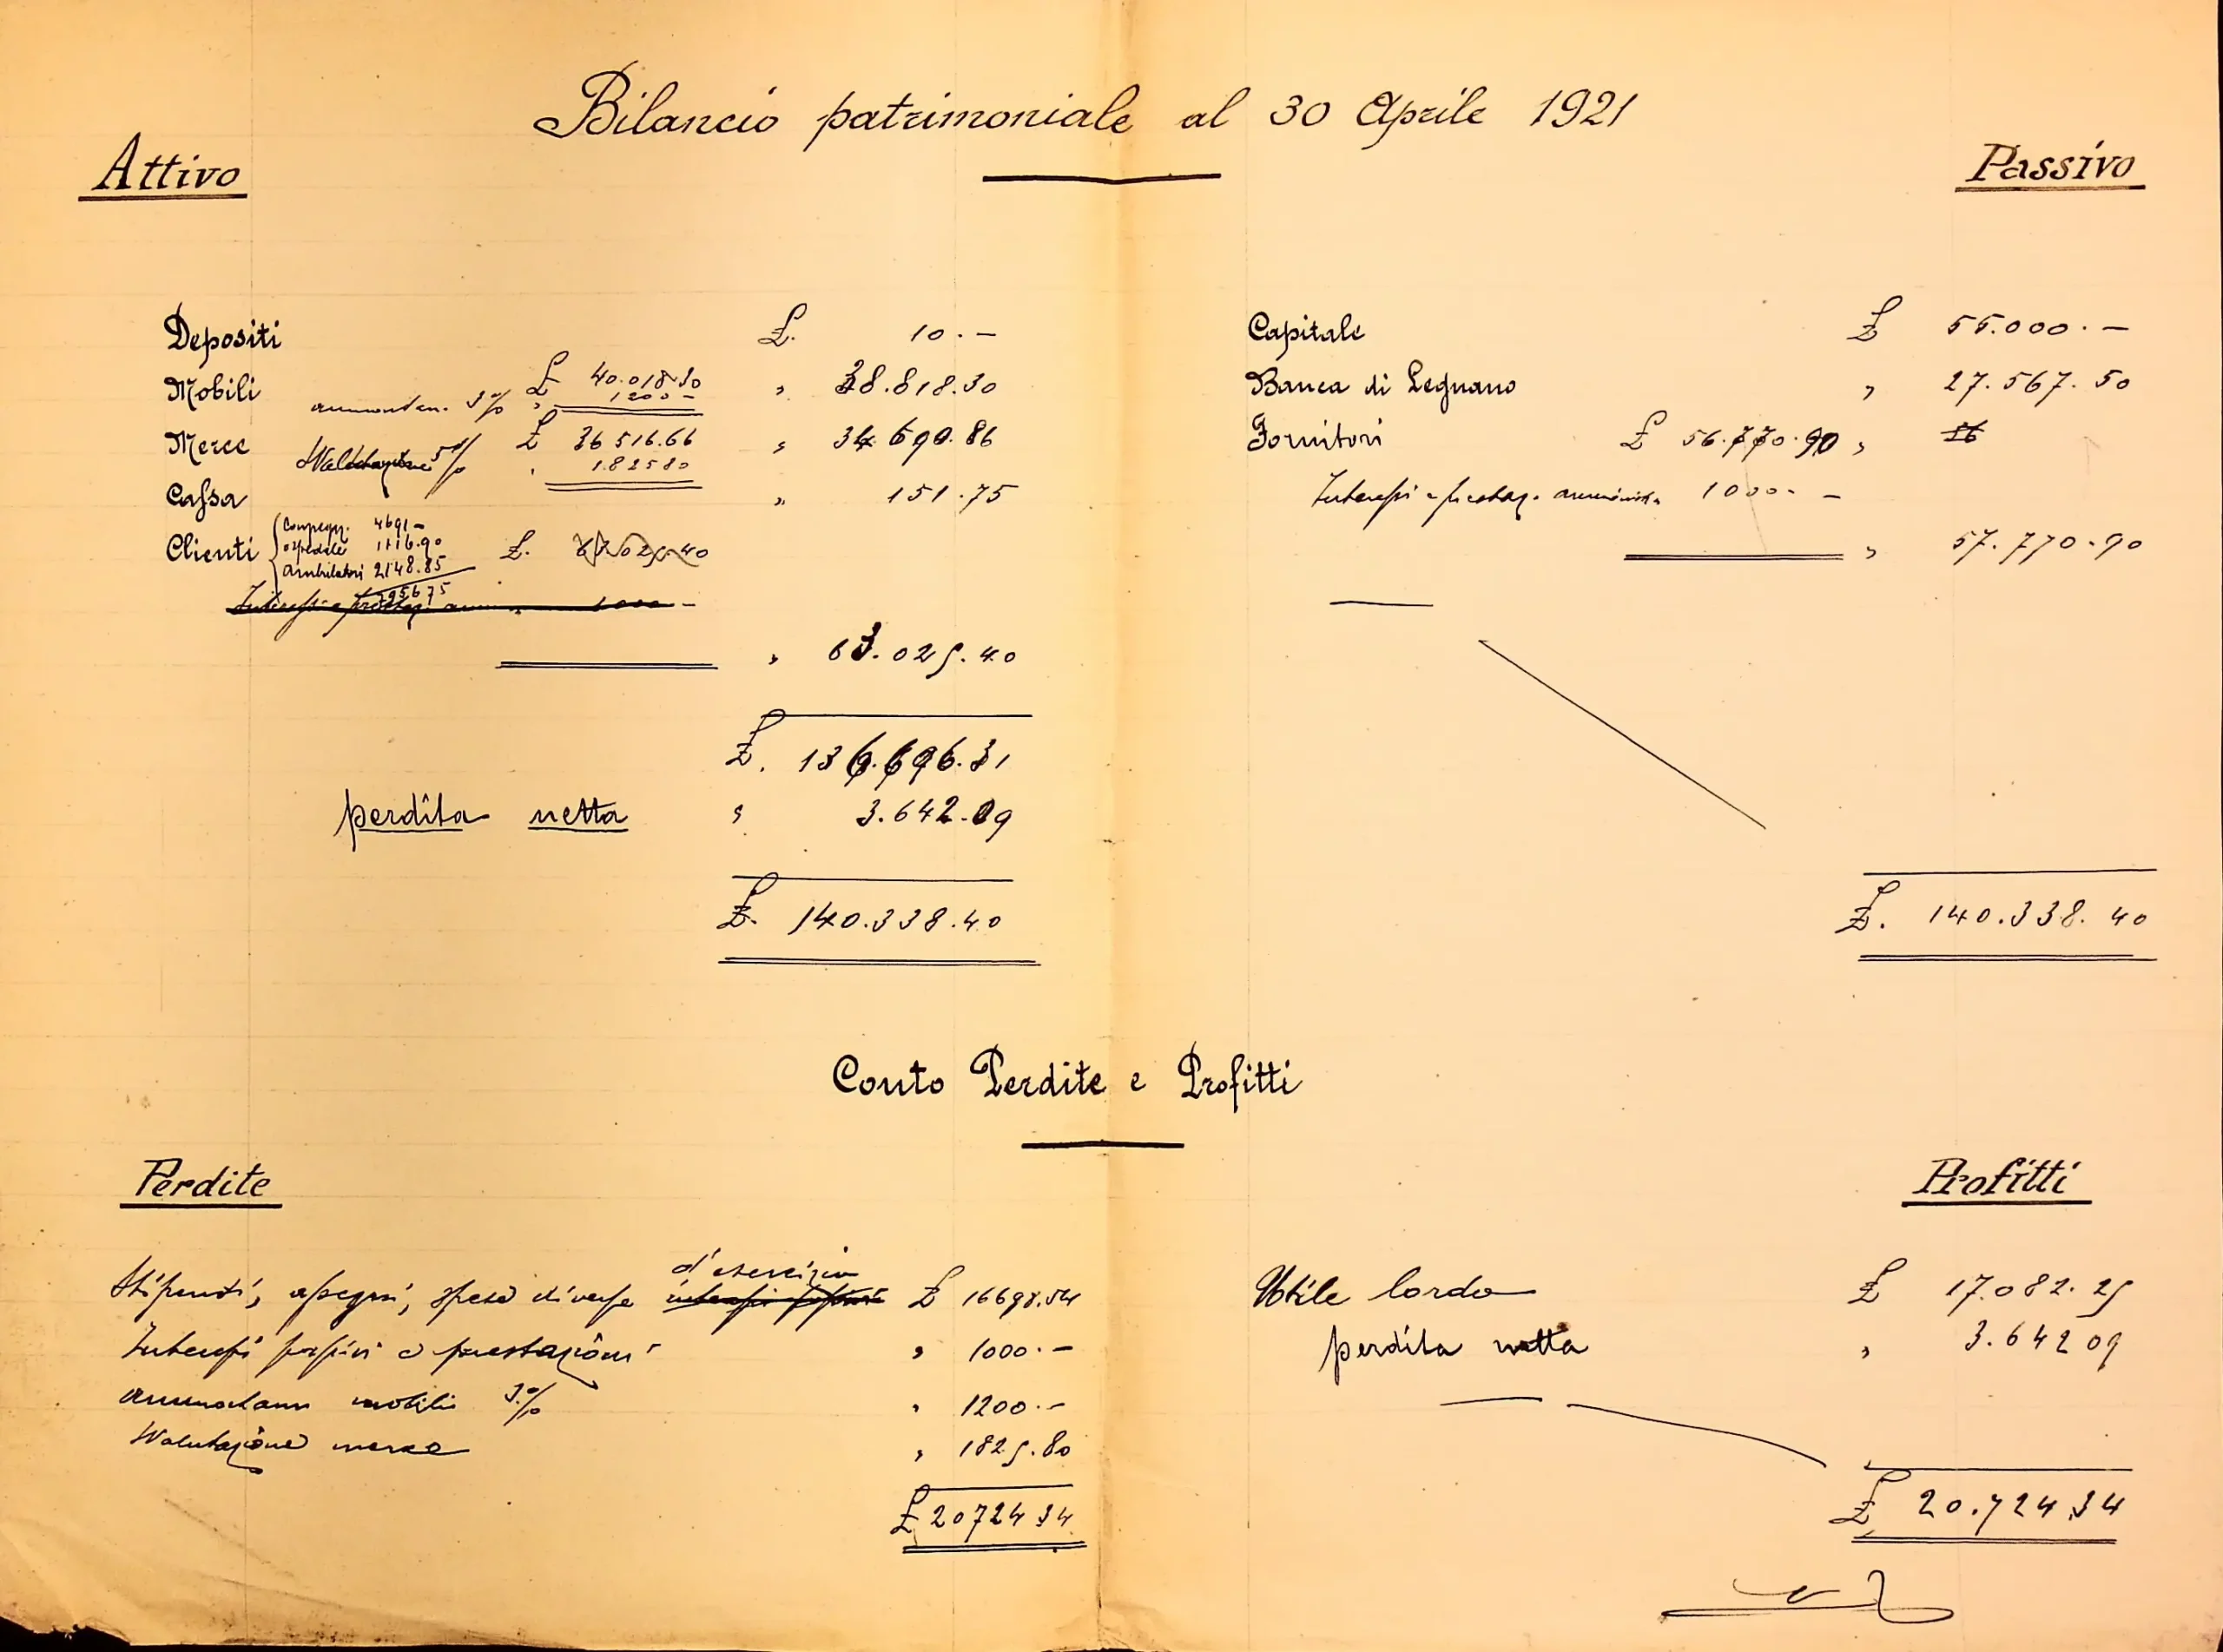 Bilancio patrimoniale al 30 Aprile 1921
Attivo
Passivo
Depositi £. 10.—
Mobili £ 40.018.30 " 38.818.30
ammortam. 3% " 1200 —
Merce £ 36 516.66 " 34.690.86
5% " 1.825 80
Cassa " 151.75
Clienti £. 40
4691 —
ospedale 1116.90
ambulatori 2148.85
7956 75
1000 —
" 63.025.40
£. 136.696.31
perdita netta " 3.642.09
£. 140.338.40
Capitale £ 55.000.—
Banca di Legnano " 27.567.50
Fornitori £ 56.770.90 "
Interessi e prestaz. 1000. —
" 57.770.90
£. 140.338.40
Conto Perdite e Profitti
Perdite
Profitti
d'esercizio
Stipendi, assegni, spese diverse £ 16698.54
Interessi passivi e prestazioni " 1000.—
ammortam mobili 3% " 1200.—
Valutazione merce " 1825.80
£ 20724 34
Utile lordo £ 17.082.25
perdita netta " 3.642 09
£ 20.724.34